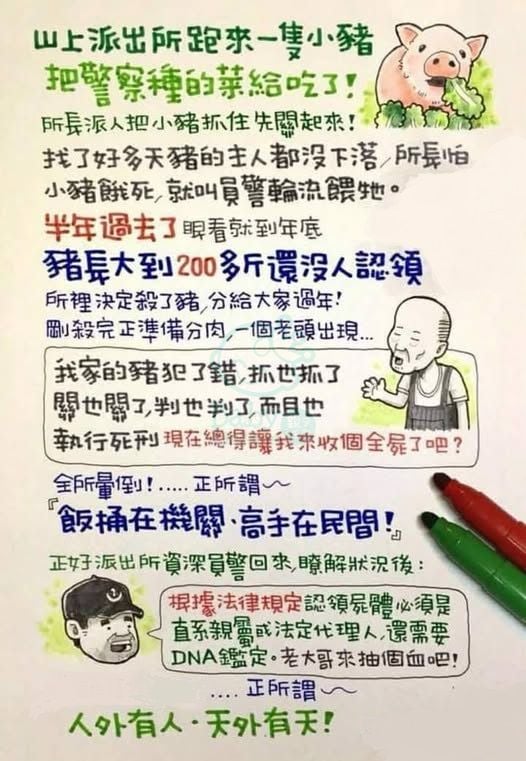 山上派出所跑來一隻小豬
把警察種的菜給吃了!
所長派人把小豬抓住先關起來!
找了好多天豬的主人都沒下落,所長怕
小豬餓死,就叫員警輪流餵牠。
半年過去了 眼看就到年底
豬長大到200多斤還沒人認領
所裡決定殺了豬,分給大家過年!
剛殺完正準備分肉,一個老頭出現...
我家的豬犯了錯,抓也抓了
關也關了,判也判了,而且也
執行死刑 現在總得讓我來收個全屍了吧?
全所暈倒!.....正所謂~
『飯桶在機關、高手在民間!』
正好派出所資深員警回來,瞭解狀況後:
根據法律規定認領屍體必須是
直系親屬或法定代理人,還需要
DNA鑑定。老大哥來抽個血吧!
....正所謂~
人外有人·天外有天!